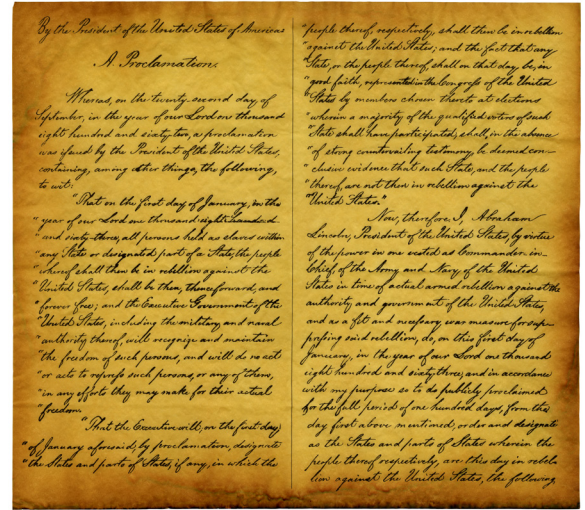 By the President of the United States of America:
A Proclamation.
Whereas, on the twenty-second day of
September, in the year of our Lord one thousand
eight hundred and sixty-two, a proclamation
was issued by the President of the United States,
containing, among other things, the following,
to wit:
"That on the first day of January, in the
"year of our Lord one thousand eight hundred
"and sixty-three, all persons held as slaves within
"any State or designated part of a State, the people
"whereof shall then be in rebellion against the
"United States, shall be then, thenceforward, and
"forever free; and the Executive Government of the
"United States, including the military and naval
"authority thereof, will recognize and maintain
"the freedom of such persons, and will do no act
"or acts to repress such persons, or any of them,
"in any efforts they may make for their actual
"freedom.
"That the Executive will, on the first day
"of January aforesaid, by proclamation, designate
"the States and parts of States, if any, in which the
"people thereof, respectively, shall then be in rebellion
"against the United States; and the fact that any
"State, or the people thereof, shall on that day be, in
"good faith, represented in the Congress of the United
"States by members chosen thereto at elections
"wherein a majority of the qualified voters of such
"State shall have participated, shall, in the absence
"of strong countervailing testimony, be deemed con-
"clusive evidence that such State, and the people
"thereof, are not then in rebellion against the
"United States."
Now, therefore I, Abraham
Lincoln, President of the United States, by virtue
of the power in me vested as Commander-in-
Chief, of the Army and Navy of the United
States in time of actual armed rebellion against the
authority and government of the United States,
and as a fit and necessary war measure for sup-
pressing said rebellion, do, on this first day of
January, in the year of our Lord one thousand
eight hundred and sixty three, and in accordance
with my purpose so to do publicly proclaimed
for the full period of one hundred days, from the
day first above mentioned, order and designate
as the States and parts of States wherein the
people thereof respectively, are this day in rebel-
lion against the United States, the following,